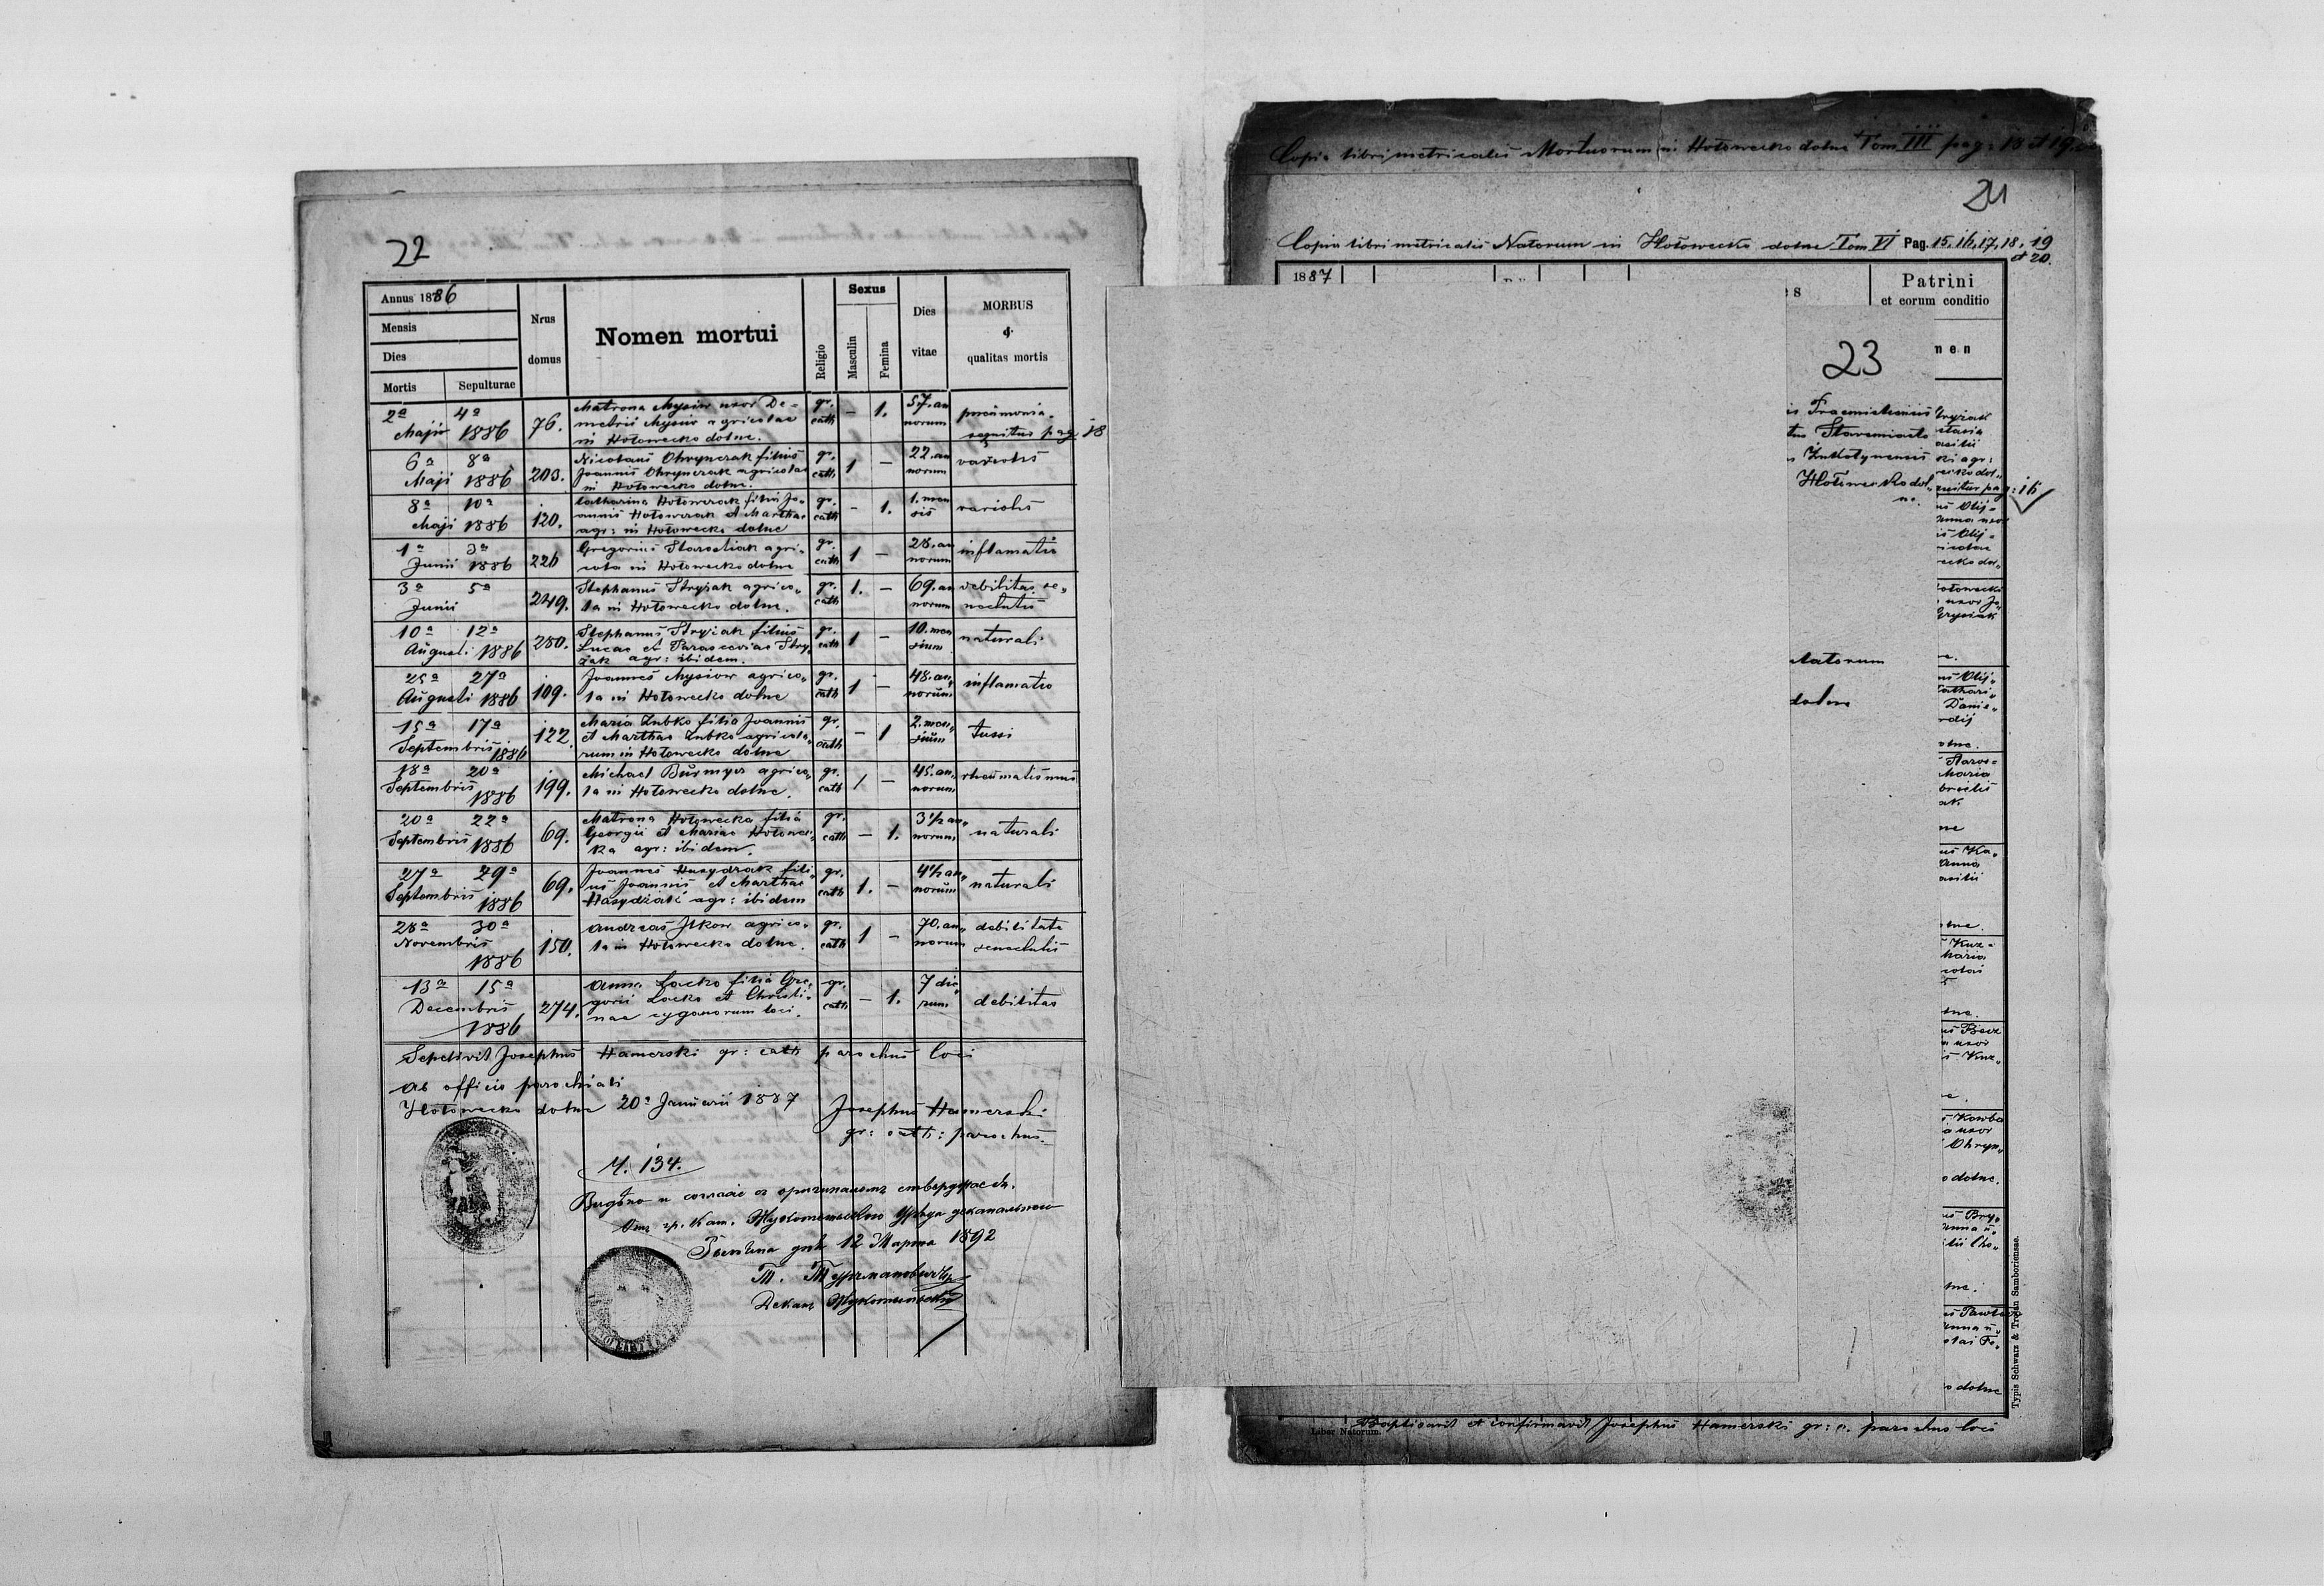 22
Annus 1886
Mensis
Dies
Mortis Sepulturae
Nrus domus
Nomen mortui
Religio
Sexus
Masculin
Femina
Dies vitae
MORBUS
&
qualitas mortis
2a 4a
Maji 1886
76.
Matrona Mysiw uxor De=
metrii Mysiw agricolae
in Hołowecko dolne.
gr. cath
– 1.
57. an
norum
pneumonia.
sequitur pag 18
6a 8a
Maji 1886
203.
Nicolaus Ohrynczak filius
Joannis Ohrynczak agricolae
in Hołowecko dolne.
gr. cath
1 –
22. an
norum
variolis
8a 10a
Maji 1886
120.
Catharina Hołowczak filia Jo„
annis Hołowczak et Marthae
agr: in Hołowecko dolne
gr. cath
– 1.
1. men
sis
variolis
1a 3a
Junii 1886
226
Gregorius Starostiak agri„
cola in Hołowecko dolne
gr. cath
1 –
28. an
norum
inflamatio
3a 5a
Junii
249.
Stephanus Stryiak agrico„
la in Hołowecko dolne.
gr. cath
1. –
69. an
norum
debilitas se„
nectutis
10a 12a
Augusti 1886
280.
Stephanus Stryiak filius
Lucae et Parasceviae Stry
iak agr: ibidem.
gr. cath
1 –
10. men
sium
naturali
25a 27a
Augusti 1886
109.
Joannes Mysiow agrico„
la in Hołowecko dolne
gr. cath
1 –
48. an„
norum
inflamatio
15a 17a
Septembris 1886
122.
Maria Zubko filia Joannis
et Marthae Zubko agricola„
rum in Hołowecko dolne
gr. cath
– 1
2. men„
sium
tussi
18a 20a
Septembris 1886
199.
Michael Burmycz agrico„
la in Hołowecko dolne.
gr. cath
1 –
45. an„
norum
rheumatismus
20a 22a
Septembris 1886
69.
Matrona Hołowecka filia
Georgii et Mariae Hołowec„
ka agr: ibidem.
gr. cath
– 1.
3 1/2 an„
norum
naturali
27a 29a
Septembris 1886
69.
Joannes Hasydzak fili„
us Joannis et Marthae
agr: ibidem
gr. cath
1. –
4 1/2 an„
norum
naturali
28a 30a
Novembris
1886
150.
Andreas Ilkow agrico„
la in Hołowecko dolne.
gr. cath
1 –
70. an„
norum
debilitate
senectutis
13a 15a
Decembris
1886
274.
Anna Lacko filia Gre„
gorii Lacko et Christi„
nae cyganorum loci.
gr. cath
– 1.
7 die„
rum
debilitas
Sepelivit Josephus Hamerski gr: cath parochus loci
Ab officio parochiali
Hołowecko dolne 20a Januarii 1887
Josephus Hamerski
gr: cath: parochus.
Ч. 134.
Видѣно и согласіе съ оригиналомъ стверджаєсь.
Отъ гр. кат. Жукотинского Уряда деканального
дня 12 Марта 1892
Деканъ Жукотинскій
Copia libri metricalis Mortuorum in Hołowecko dolne Tom III pag: 18 et 19.
21
Copia libri metricalis Natorum in Hołowecko dolne Tom VI Pag. 15, 16, 17, 18, 19
et 20.
1887
Patrini
et eorum conditio
23
Staremiasto
Hołowecko dol„
ne.
dolne
Typis Schwarz & Trojan Samboriensae.
Liber Natorum.
Baptisavit et confirmavit Josephus Hamerski gr: c. parochus loci